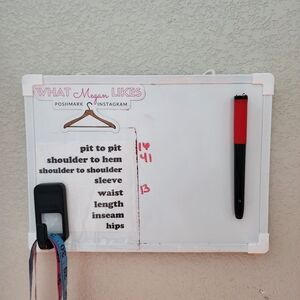 WHAT Megan LIKES
POSHMARK INSTAGRAM
pit to pit
shoulder to hem 41
shoulder to shoulder
sleeve
waist 13
length
inseam
hips